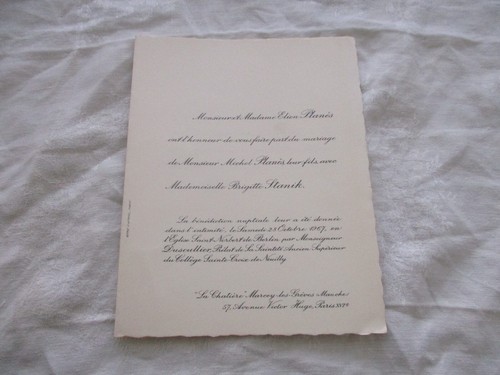 Monsieur et Madame Elven Planis
ont l'honneur de vous faire part du mariage
de Monsieur Michel Planis leur fils, avec
Mademoiselle Brigitte Stanik.
La bénédiction nuptiale leur a été donnée
dans l'intimité, le Samedi 28 Octobre 1967, en
l'Eglise Saint Norbert de Berlin par Monseigneur
Prélat de Sa Sainteté Ancien Supérieur
du Collège Sainte Croix de Neuilly.
"La Chatière" Marcey-les-Grèves Manche
57, Avenue Victor Hugo, Paris XVIe